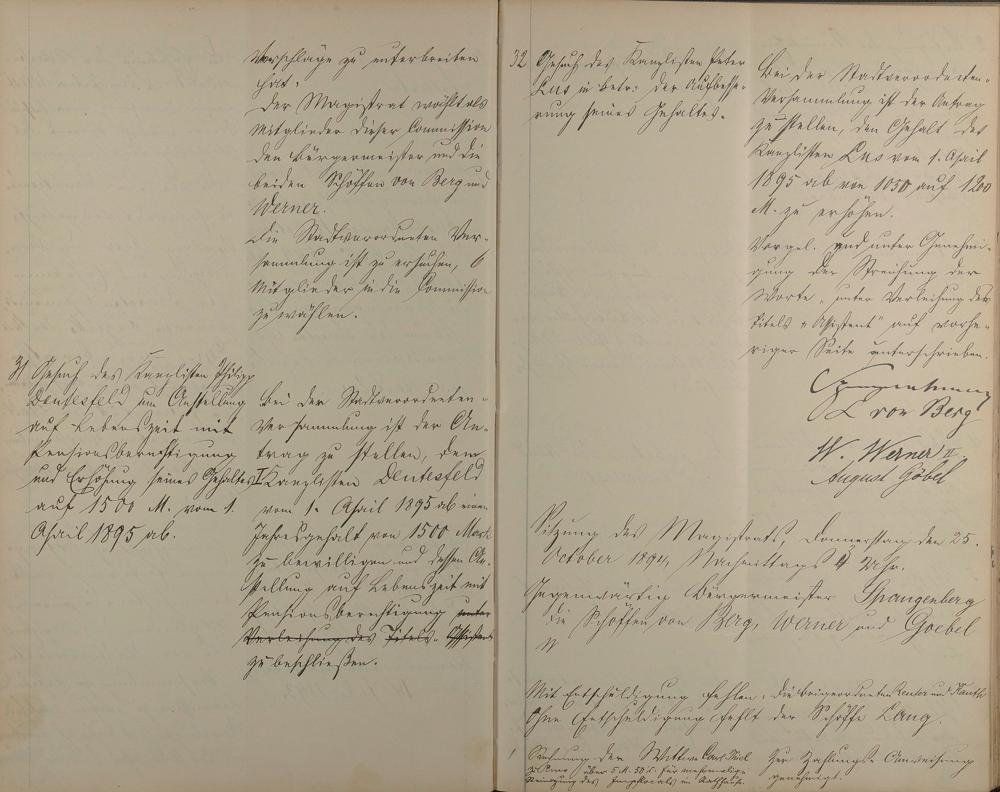 Vorschläge zu unterbreiten
hat.
Der Magistrat wählt als
Mitglieder dieser Commission
den Bürgermeister und die
beiden Schöffen von Berg und
Werner.
Die Stadtverordneten Ver-
sammlung ist zu ersuchen, 6
Mitglieder in die Commission
zu wählen.
31 Gesuch des Kanzlisten Philipp
Deutesfeld um Anstellung
auf Lebenszeit mit
Pensionsberechtigung
und Erhöhung seines Gehaltes
auf 1500 M. vom 1.
April 1895 ab.
Bei der Stadtverordneten-
Versammlung ist der An-
trag zu stellen, dem
I Kanzlisten Deutesfeld
vom 1. April 1895 ab einen
Jahresgehalt von 1500 Mark
zu bewilligen und dessen An-
stellung auf Lebenszeit mit
Pensionsberechtigung unter
Verleihung des Titels "Assistent
zu beschließen.
32 Gesuch des Kanzlisten Peter
Lus in betr. der Aufbesse-
rung seines Gehaltes.
Bei der Stadtverordneten-
Versammlung ist der Antrag
zu stellen, den Gehalt des
Kanzlisten Lus vom 1. April
1895 ab von 1050 auf 1200
M. zu erhöhen.
Vorgel. und unter Genehmi-
gung der Streichung der
Worte "unter Verleihung des
Titels "Assistent" auf vorhe-
riger Seite unterschrieben.
L von Berg
W. Werner II
August Göbel
Sitzung des Magistrats, Donnerstag den 25.
October 1894, Nachmittags 4 Uhr.
Gegenwärtig Bürgermeister Spangenberg
die Schöffen von Berg, Werner und Goebel
Mit Entschuldigung fehlen: die Beigeordneten und
Ohne Entschuldigung fehlt der Schöffe Lang.
1 Rechnung der Wittwe Carl
über 5 M. 50 für mehrmalige
Reinigung des Impflocals im Rathhause.
Zur Zahlung Anweisung
genehmigt.